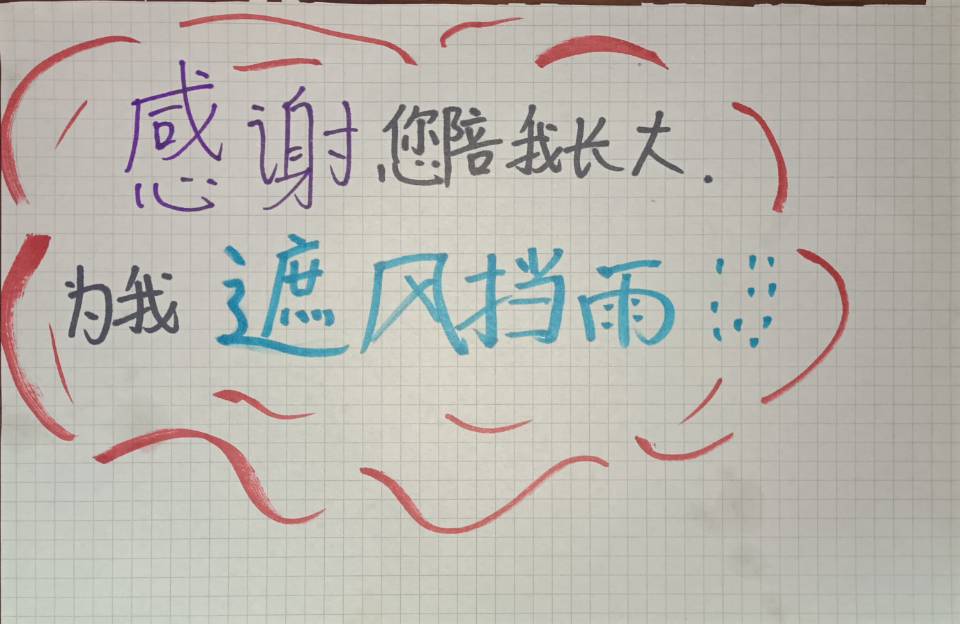 感谢您陪我长大.
为我遮风挡雨